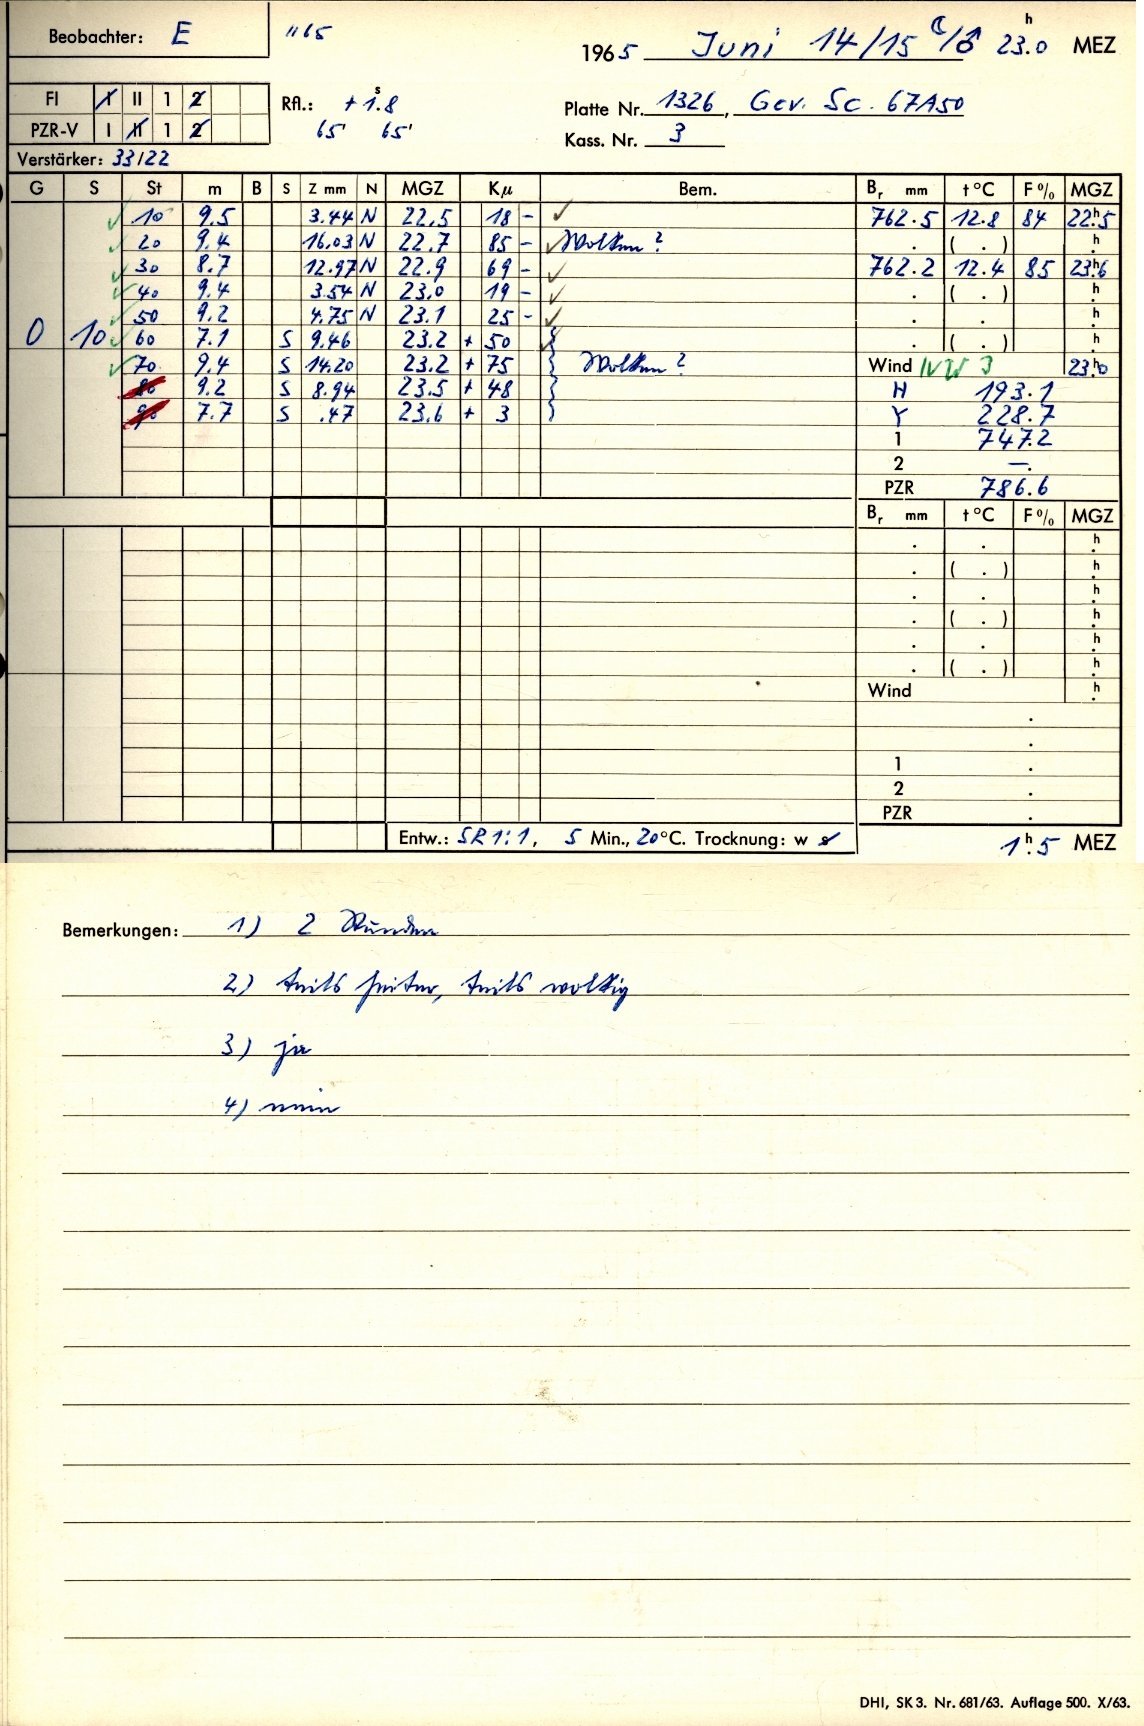 Beobachter: E "65 1965 Juni 14/15 ☾/♂ 23.0 h MEZ
FI I II 1 2 Rfl.: + 1.8 s Platte Nr. 1326, Gev. Sc. 67A50
PZR-V I II 1 2 65' 65' Kass. Nr. 3
Verstärker: 33/22
G S St m B S Z mm N MGZ Kμ Bem. Br mm t °C F % MGZ
10 9.5 3.44 N 22.5 18 - ✓ 762.5 12.8 84 22h.5
20 9.4 16.03 N 22.7 85 - ✓ Wolken? . ( . ) h
30 8.7 12.97 N 22.9 69 - ✓ 762.2 12.4 85 23h.6
40 9.4 3.54 N 23.0 19 - ✓ . ( . ) h
50 9.2 4.75 N 23.1 25 - ✓ . . h
0 10 60 7.1 S 9.46 23.2 + 50 . ( . ) h
70 9.4 S 14.20 23.2 + 75 Wolken? Wind NW 3 23h.0
80 9.2 S 8.94 23.5 + 48 H 193.1
90 7.7 S .47 23.6 + 3 Y 228.7
1 747.2
2 —.
PZR 786.6
Br mm t °C F % MGZ
. . h
. ( . ) h
. . h
. ( . ) h
. . h
. ( . ) h
Wind h
.
.
1 .
2 .
PZR .
Entw.: SR 1:1, 5 Min., 20 °C. Trocknung: w s 1h.5 MEZ
Bemerkungen: 1) 2 Stunden
2) teils heiter, teils wolkig
3) ja
4) nein
DHI, SK 3. Nr. 681/63. Auflage 500. X/63.